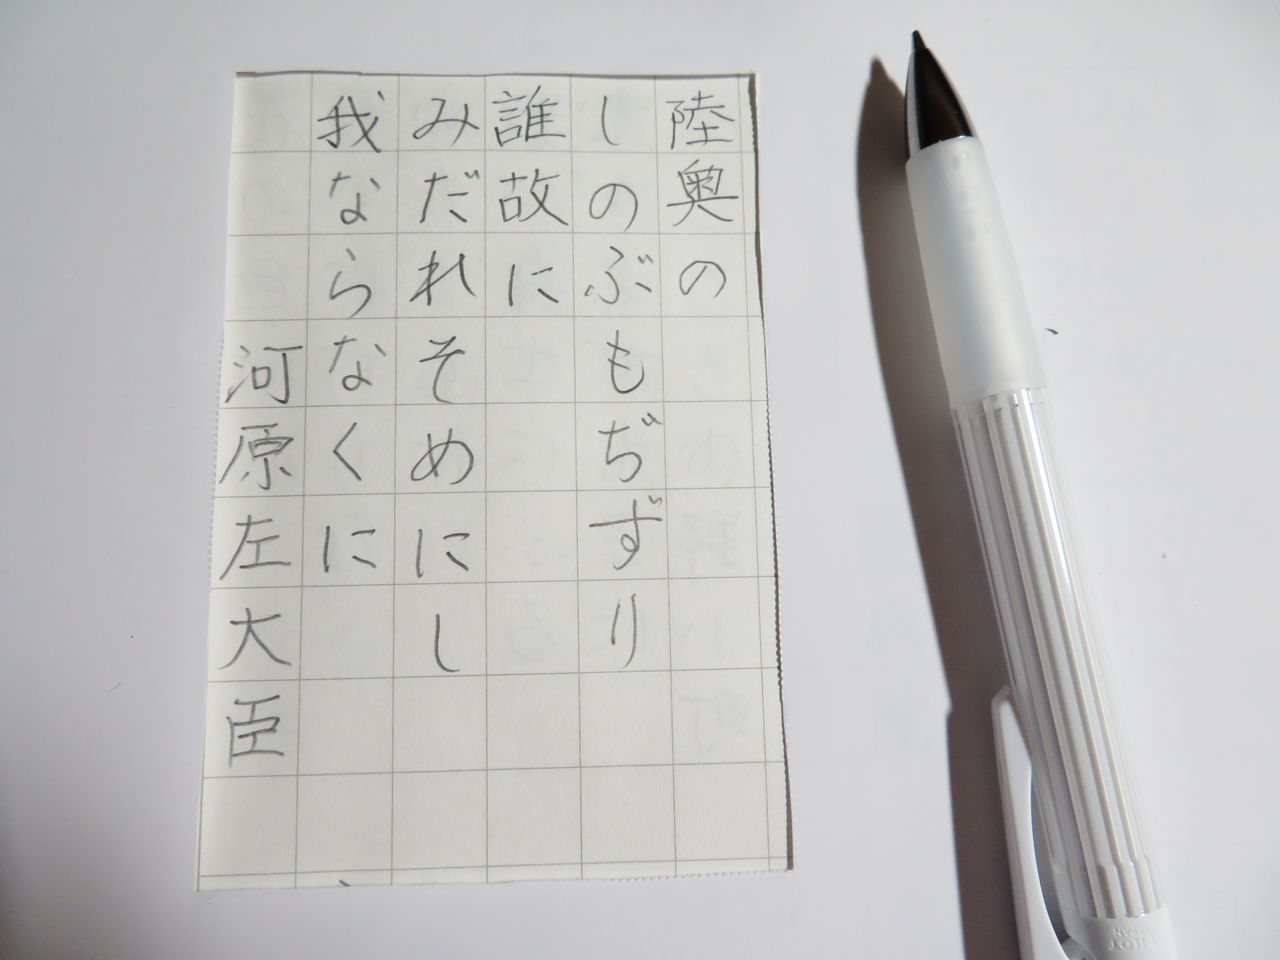 陸奥の
しのぶもぢずり
誰故に
みだれそめにし
我ならなくに
河原左大臣
PILOT
JAPAN